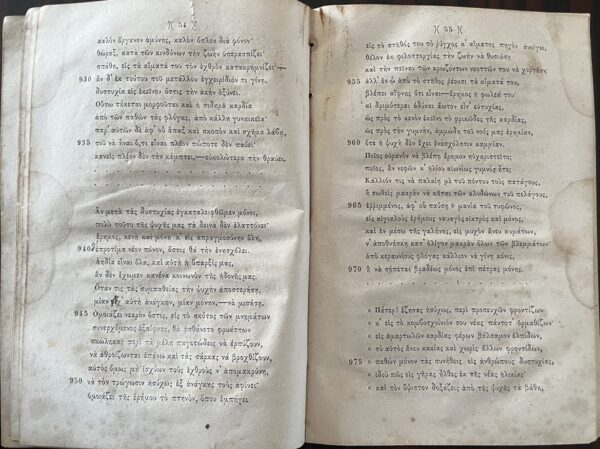 )( 54 )(
καλὸν ὄργανον ἀμύνης, καλὸν ὅπλον διὰ φόνον·
θώραξ, κατὰ τῶν κινδύνων τὴν ζωὴν ὑπερασπίζει·
σπάθη, εἰς τὰ αἵματά του τὸν ἐχθρὸν κατακρημνίζει·—
930 ἂν δ' ἐκ τούτου τοῦ μετάλλου ἐγχειρίδιόν τι γίνῃ,
δυστυχία εἰς ἐκεῖνον ὅστις τὴν ἀκὴν ὀξύνει.
Οὕτω τήκεται μορφοῦται καὶ ἡ σιδηρᾶ καρδία
ἀπὸ τῶν παθῶν τὰς φλόγας, ἀπὸ κάλλη γυναικεῖα·
παρ' αὐτῶν δὲ ἀφ' οὗ ἅπαξ καὶ σκοπὸν καὶ σχῆμα λάβῃ,
935 τοῦ νὰ ἦναι ὅ,τι εἶναι πλέον πώποτε δὲν παύει·
κανεὶς πλέον δὲν τὴν κάμπτει,—εὐκολώτερα τὴν θραύει.
Ἂν μετὰ τὰς δυστυχίας ἐγκαταλειφθῶμεν μόνοι,
πολὺ τοῦτο τῆς ψυχῆς μας τὰ δεινὰ δὲν ἐλαττόνει·
ἔρημος, κενὴ καὶ μόνη κ' εἰς ἀπραγμοσύνην ὅλη,
940 ἐπροτίμα νέον πόνον, ὅστις θὰ τὴν ἐνησχόλει.
Ἀηδία εἶναι ὅλα, καὶ αὐτὴ ἡ ὕπαρξίς μας,
ἂν δὲν ἔχωμεν κανένα κοινωνὸν τῆς ἡδονῆς μας.
Ὅταν τις τὰς συμπαθείας τὴν ψυχὴν ἀποστερήσῃ,
μίαν ἔχ' αὐτὴ ἀνάγκην, μίαν μόνην,—νὰ μισήσῃ.
945 Ὁμοιάζει νεκρὸν ὅστις, εἰς τὸ σκότος τῶν μνημάτων
συνερχόμενος ἐξαίφνης, θὰ ᾐσθάνετο φρυάττων
σκώληκας περὶ τὰ μέλη παγετώδεις νὰ ἑρπύζουν,
νὰ ἀθροίζωνται ἐπάνω καὶ τὰς σάρκας νὰ βροχθίζουν,
αὐτὸς ὅμως μὴ ἰσχύων τοὺς ἐχθροὺς ν' ἀπομακρύνῃ,
950 νὰ τὸν τρώγωσιν ἡσύχως ἐξ ἀνάγκης τοὺς ἀφίνει·
ὁμοιάζει τῆς ἐρήμου τὸ πτηνὸν, ὅπου ἐμπήγει
)( 55 )(
εἰς τὸ στῆθός του τὸ ῥύγχος κ' αἵματος πηγὴν ἀνοίγει,
θέλον ἐκ φιλοστοργίας τὴν ζωὴν νὰ θυσιάσῃ
καὶ τὴν πεῖναν τῶν κρωζόντων νεοσσῶν του νὰ χορτάσῃ,
955 ἀλλ' ἐν ᾧ ἀπὸ τὸ στῆθος ῥέουσι τὰ αἵματά του,
βλέπει αἴφνης ὅτι εἶναι—ἔρημος ἡ φωλεά του·
αἱ δριμύτεραι ὀδύναι ἄωτον εἶν' εὐτυχίας,
ὡς πρὸς τὸ κενὸν ἐκεῖνο τὸ φρικῶδες τῆς καρδίας,
ὡς πρὸς τὴν γυμνὴν, ἀμμώδη τοῦ νοός μας ἐρημίαν,
960 ὅτε ἡ ψυχὴ δὲν ἔχει ἐνασχόλησιν καμμίαν.
Ποῖος οὐρανὸν νὰ βλέπῃ ἔρημον ηὐχαριστεῖτο;
ποῖος, ἂν νεφῶν κ' ἡλίου αἰωνίως γυμνὸς ἦτο;
Κάλλιόν τις νὰ παλαίῃ μὲ τοῦ πόντου τοὺς πατάγους,
ἢ σωθεὶς μακρὰν νὰ κῆται τῶν κλυδώνων τοῦ πελάγους,
965 ἐῤῥιμμένος, ἀφ' οὗ παύσῃ ἡ μανία τοῦ τυφῶνος,
εἰς αἰγιαλοὺς ἐρήμους ναυαγὸς οἰκτρὸς καὶ μόνος,
καὶ ἐν μέσῳ τῆς γαλήνης, εἰς μυχὸν ἄνευ κυμάτων,
ν' ἀποθνήσκῃ κατ' ὀλίγον μακρὰν ὅλων τῶν βλεμμάτων·
ἀπὸ κεραυνοῦ φλόγας κάλλιον νὰ γίνῃ κόνις,
970 ἢ νὰ σήπεται βραδέως μόνος ἐπὶ πέτρας μόνης.
« Πάτερ! ἔζησας ἡσύχως, περὶ προσευχῶν φροντίζων
« κ' εἰς τὸ κομβοσχοίνιόν σου νέας πάντοτ' ὁρμαθίζων·
« εἰς ἁμαρτωλῶν καρδίας φέρων βάλσαμον ἐλπίδων,
« σὺ αὐτὸς ἄνευ κακίας καὶ χωρὶς ἄλλων φροντίδων,
975 « παθῶν μόνον τὰς συνήθεις εἰς ἀνθρώπους δυστυχίας,
« ἰδοὺ πῶς εἰς γῆρας ἦλθες ἐκ τῆς νέας ἡλικίας·
« καὶ τὸν ὕψιστον δοξάζεις ἀπὸ τῆς ψυχῆς τὰ βάθη,